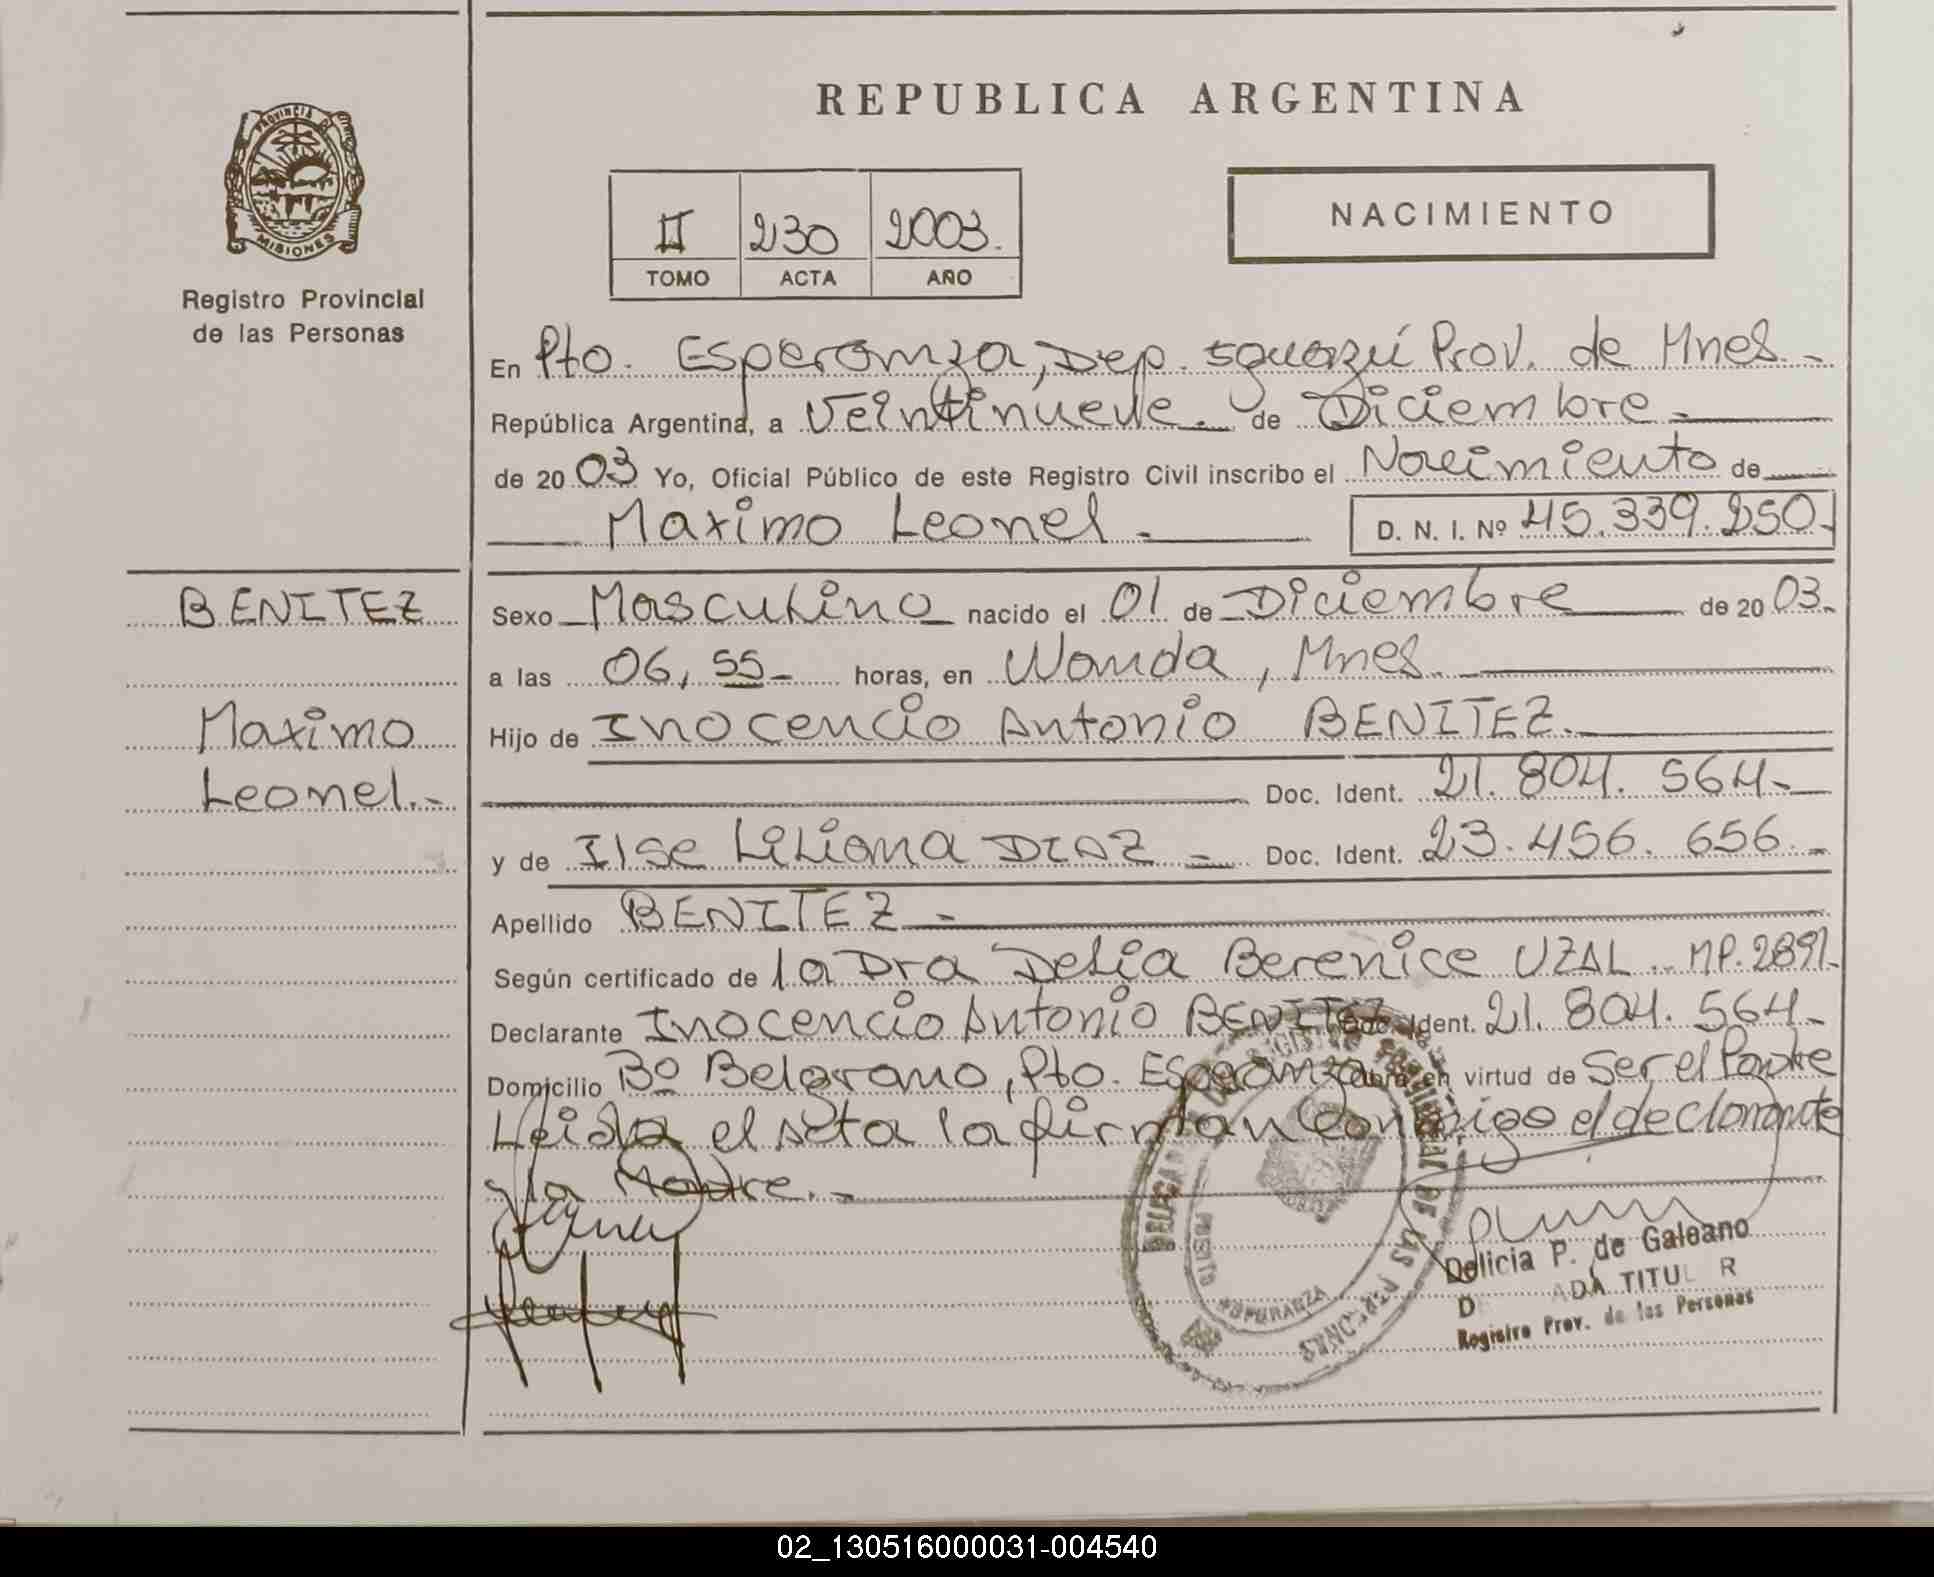 REPUBLICA ARGENTINA
PROVINCIA DE
MISIONES
Registro Provincial
de las Personas
II 230 2003.
TOMO ACTA AÑO
NACIMIENTO
En Pto. Esperanza, Dep. Iguazú Prov. de Mnes.-
República Argentina, a Veintinueve.- de Diciembre.-
de 2003 Yo, Oficial Público de este Registro Civil inscribo el Nacimiento de
Maximo Leonel.- D. N. I. Nº 45.339.250.-
BENITEZ
Maximo
Leonel.-
Sexo Masculino nacido el 01 de Diciembre de 2003.-
a las 06,55- horas, en Wanda, Mnes.
Hijo de Inocencio Antonio BENITEZ.-
Doc. Ident. 21.804.564-
y de Ilse Liliana DIAZ - Doc. Ident. 23.456.656.-
Apellido BENITEZ-
Según certificado de la Dra Delia Berenice UZAL.. MP.2891-
Declarante Inocencio Antonio BENITEZ Doc. Ident. 21.804.564-
Domicilio Bº Belgrano, Pto. Esperanza Obra en virtud de Ser el Padre
Leida el Acta la firman conmigo el declarante
y la Madre.-
REGISTRO PROVINCIAL DE LAS PERSONAS
PUERTO ESPERANZA
Delicia P. de Galeano
TITUL R
Registro Prov. de las Personas
02_130516000031-004540